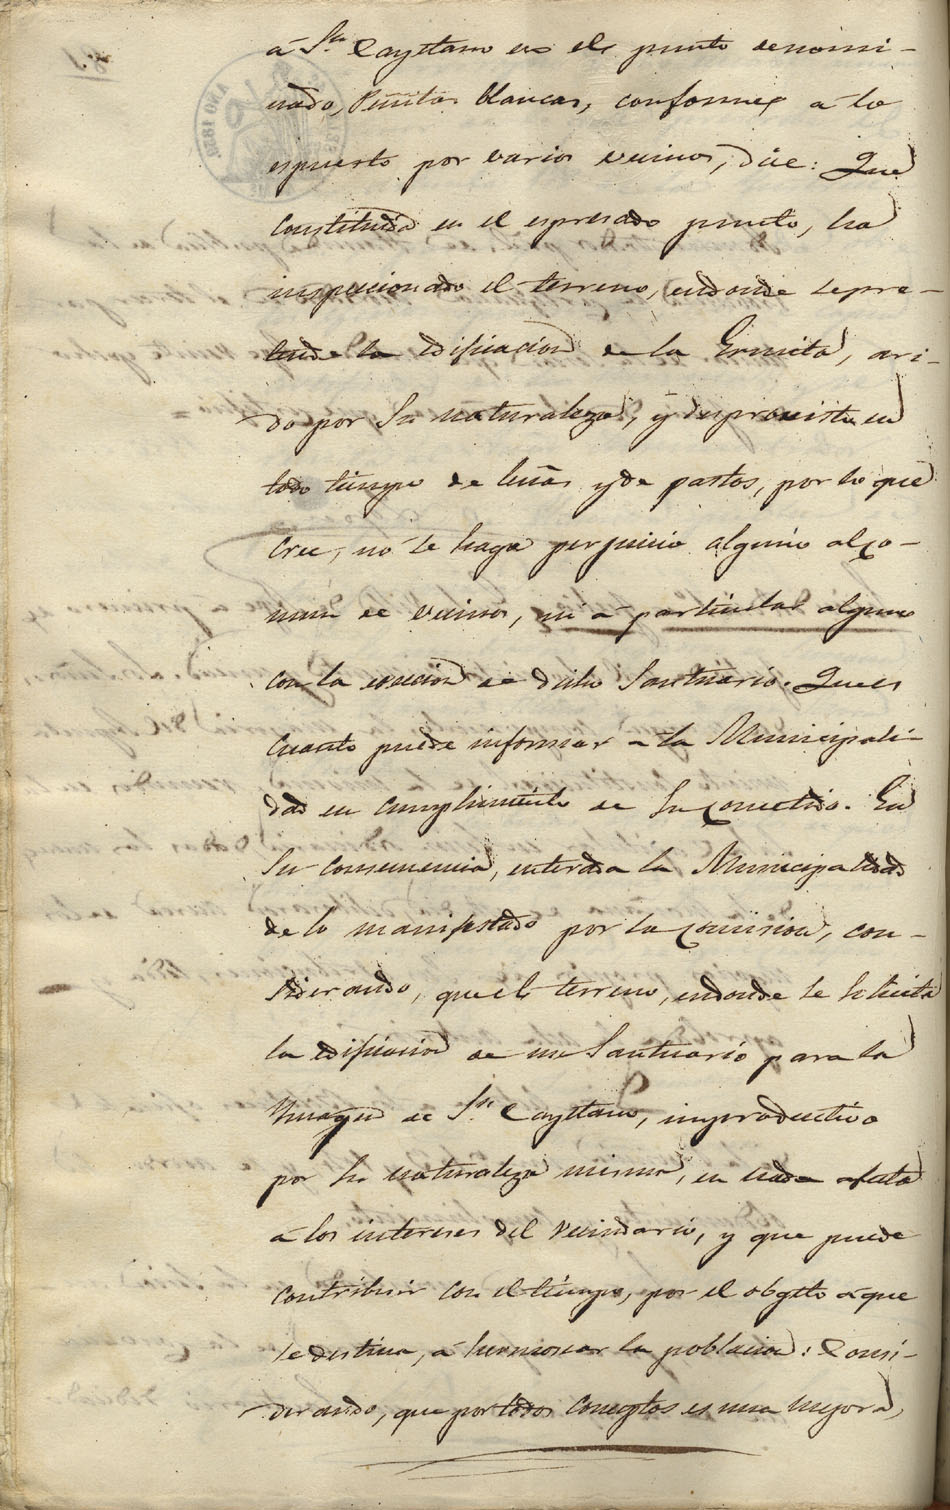 á Sn. Cayetano en el punto denomi-
nado, Peñitas blancas, conforme á lo
espuesto por varios vecinos, dice: Que
constituida en el espresado punto, ha
inspeccionado el terreno, endonde se pre-
tende la edificacion de la Ermita, ari-
do por su naturaleza, y desprovisto en
todo tiempo de leñas y de pastos, por lo que
cree, no se haga perjuicio alguno al co-
mun de vecinos, ni á particular alguno
con la ereccion de dicho Santuario. Que es
cuanto puede informar á la Municipali-
dad en cumplimiento de su cometido. En
su consecuencia, enterada la Municipalidad
de lo manifestado por la comision, con-
siderando, que el terreno, endonde se solicita
la edificacion de un Santuario para la
Imagen de Sn. Cayetano, improductivo
por su naturaleza misma, en nada afecta
á los intereses del vecindario, y que puede
contribuir con el tiempo, por el obgeto á que
se destina, á hermosear la poblacion: Consi-
derando, que por todos conceptos es una mejora,